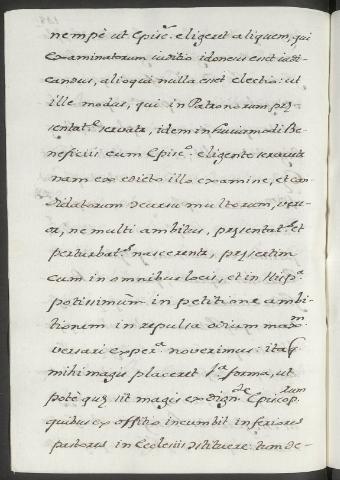 nempè ut Episc.^s eligeret aliquem, qui
examinatorum iuditio idoneus esset iudi-
candus, alioqui nulla esset electio: ut
ille modus, qui in Patronorum prę-
sentat.^e servata, idem in huiusmodi Be-
neficiis cum Episc.^o eligente
nam ex edicto illo examine, et can-
didatorum decursu multorum, vere-
or, ne multi ambitus, pręsentat.^s et
perturbat.^s nascerentr, pręsertim
cum in omnibus locis, et in Hisp.^a
potissimùm in petitione ambi-
tionum in repulsa odium max.^m
versari exper.^a noverimus: itaq
mihi magis placeret p.^a forma, ut
potè quę sit magis ex dign.^te Episcop.^tum
quibus ex offitio incumbit inferiores
pastores in Ecclesiis istituere: tum de-